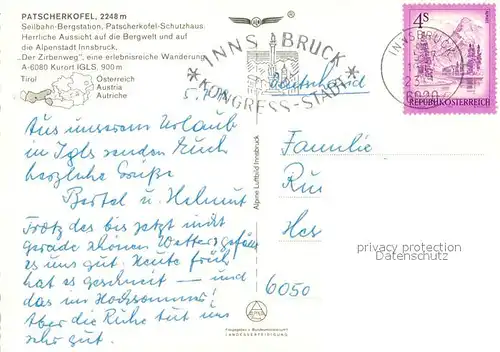 PATSCHERKOFEL, 2248 m
Seilbahn-Bergstation, Patscherkofel-Schutzhaus
Herrliche Aussicht auf die Bergwelt und auf
die Alpenstadt Innsbruck.
„Der Zirbenweg", eine erlebnisreiche Wanderung
A-6080 Kurort IGLS, 900 m
Tirol
Österreich
Austria
Autriche
INNSBRUCK
*KONGRESS-STADT*
INNSBRUCK
6020
4S
REPUBLIK ÖSTERREICH
Deutschland
Aus unserem Urlaub
in Igls senden Euch
herzliche Grüße
Bertel u. Helmut
Trotz des bis jetzt nicht
gerade schönen Wetters gefällt
es uns gut. Heute früh
hat es geschneit – und
das im Hochsommer!
Aber die Ruhe tut uns
sehr gut.
Alpine Luftbild Innsbruck
Familie
Ru
Her
6050
privacy protection
Datenschutz